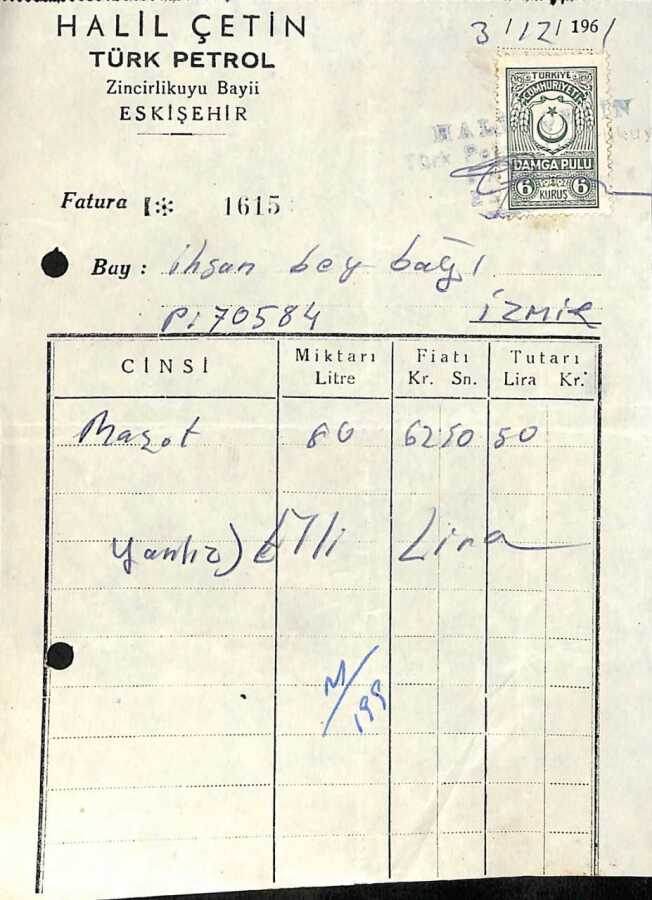 HALİL ÇETİN
TÜRK PETROL
Zincirlikuyu Bayii
ESKİŞEHİR
3/12/1961
TÜRKİYE
CUMHURİYETİ
DAMGA PULU
6 KURUŞ 6
Fatura 1615
Bay : ihsan bey bağı
Pi 70584 İZMİR
CİNSİ Miktarı Litre Fiatı Kr. Sn. Tutarı Lira Kr.
Mazot 80 62 50 50
yanlız) Elli Lira
199